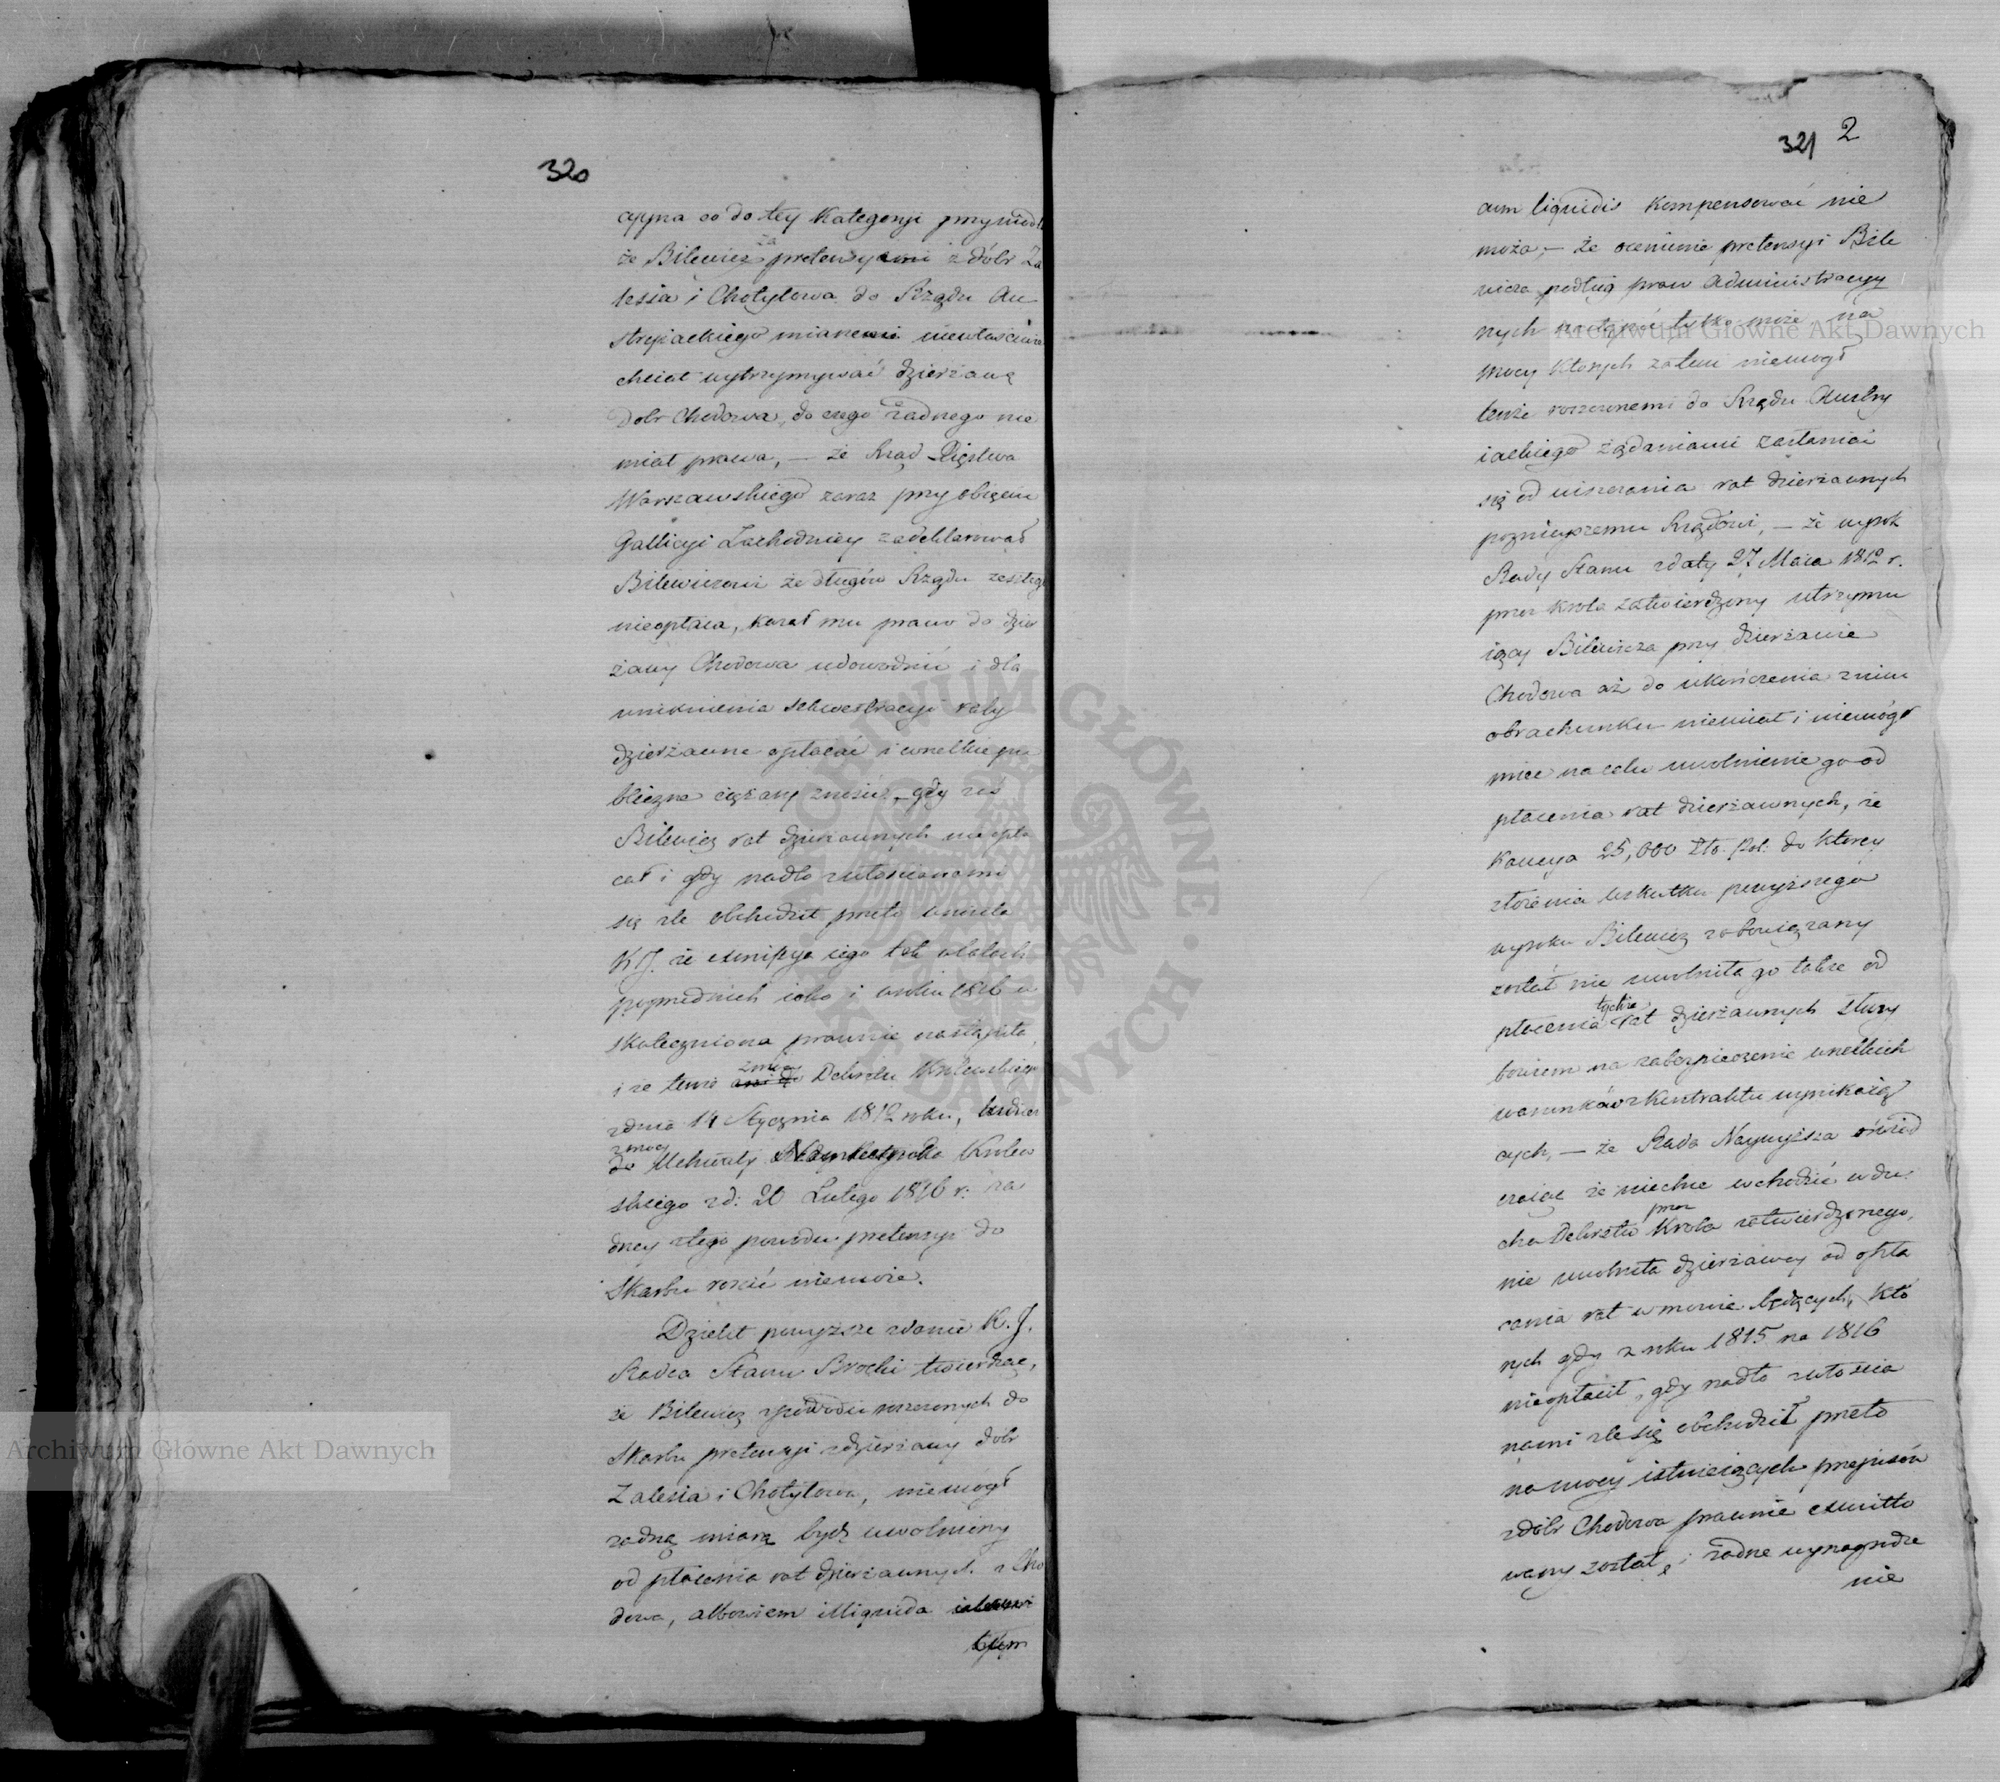 320
cyyna co do tey Kategoryi przywiodł
że Bilewicz za pretensyami z dóbr Za
lesia i Chotyłowa do Rządu Au
stryiackiego mianemi niewłaściwie
chciał wytrzymywać dzierżawę
Dobr Chodowa, do czego żadnego nie
miał prawa, — że Rząd Xięstwa
Warszawskiego zaraz przy obięciu
Gallicyi Zachodniey zadeklarował
Bilewiczowi że długów Rządu zeszłego
nieopłaca, kazał mu prawo do dzier
żawy Chodowa udowodnić i dla
uniknienia sekwestracyi raty
dzierżawne opłacać i wszelkie pu
bliczne ciężary znosić, gdy zaś
Bilewicz rat dzierżawnych nie opła
cał i gdy nadto z włościanami
się źle obchodził przeto wniosła
K. J. że exmissya iego tak w latach
poprzednich iako i w roku 1816 u
skuteczniona prawnie nastąpiła,
i że tenże z mocy Dekretu Królewskiego
z dnia 14 Stycznia 1812 roku, tudzież
z mocy Uchwały Namiestnika Królew
skiego z d: 20 Lutego 1816 r: ża
dney z tego powodu pretensyi do
Skarbu rościć niemoże.
Dzielił powyższe zdanie K. J.
Radca Stanu Brocki twierdząc,
że Bilewicz z powodu roszczonych do
Skarbu pretensyi z dzierżawy dóbr
Zalesia i Chotyłowa, niemógł
żadną miarą bydź uwolniony
od płacenia rat dzierżawnych z Cho
dowa, albowiem illiquida
cum
321 2
cum liquidis kompensować nie
może, — że ocenienie pretensyi Bile
wicza podług praw Administracyy
nych nastąpić tylko może na
mocy których zatem niemógł
tenże roszczonemi do Rządu Austry
iackiego żądaniami zasłaniać
się od uiszczania rat dzierżawnych
poznieyszemu Rządowi, — że wyrok
Rady Stanu z daty 27 Maia 1812 r.
przez Króla zatwierdzony utrzymu
iący Bilewicza przy dzierżawie
Chodowa aż do ukończenia z nim
obrachunku niemiał i niemógł
mieć na celu uwolnienie go od
płacenia rat dzierżawnych, że
Kaucya 25,000 Złt. Pol: do którey
złożenia w skutku powyższego
wyroku Bilewicz zobowiązany
został nie uwolniła go także od
płacenia tychże rat dzierżawnych służy
bowiem na zabezpieczenie wszelkich
warunków z Kontraktu wynikaią
cych, — że Rada Naywyższa oświad
czaiąc że niechce wchodzić w du
cha Dekretu przez Króla zatwierdzonego,
nie uwolniła dzierżawcy od opła
cania rat w mowie będących, któ
rych gdy z roku 1815 na 1816
nieopłacił, gdy nadto z włościa
nami źle się obchodził przeto
na mocy istnieiących przepisów
z dóbr Chodowa prawnie exmitto
wany został, i żadne wynagrodze
nie
Archiwum Główne Akt Dawnych
Archiwum Główne Akt Dawnych
ARCHIWUM GŁÓWNE AKT DAWNYCH